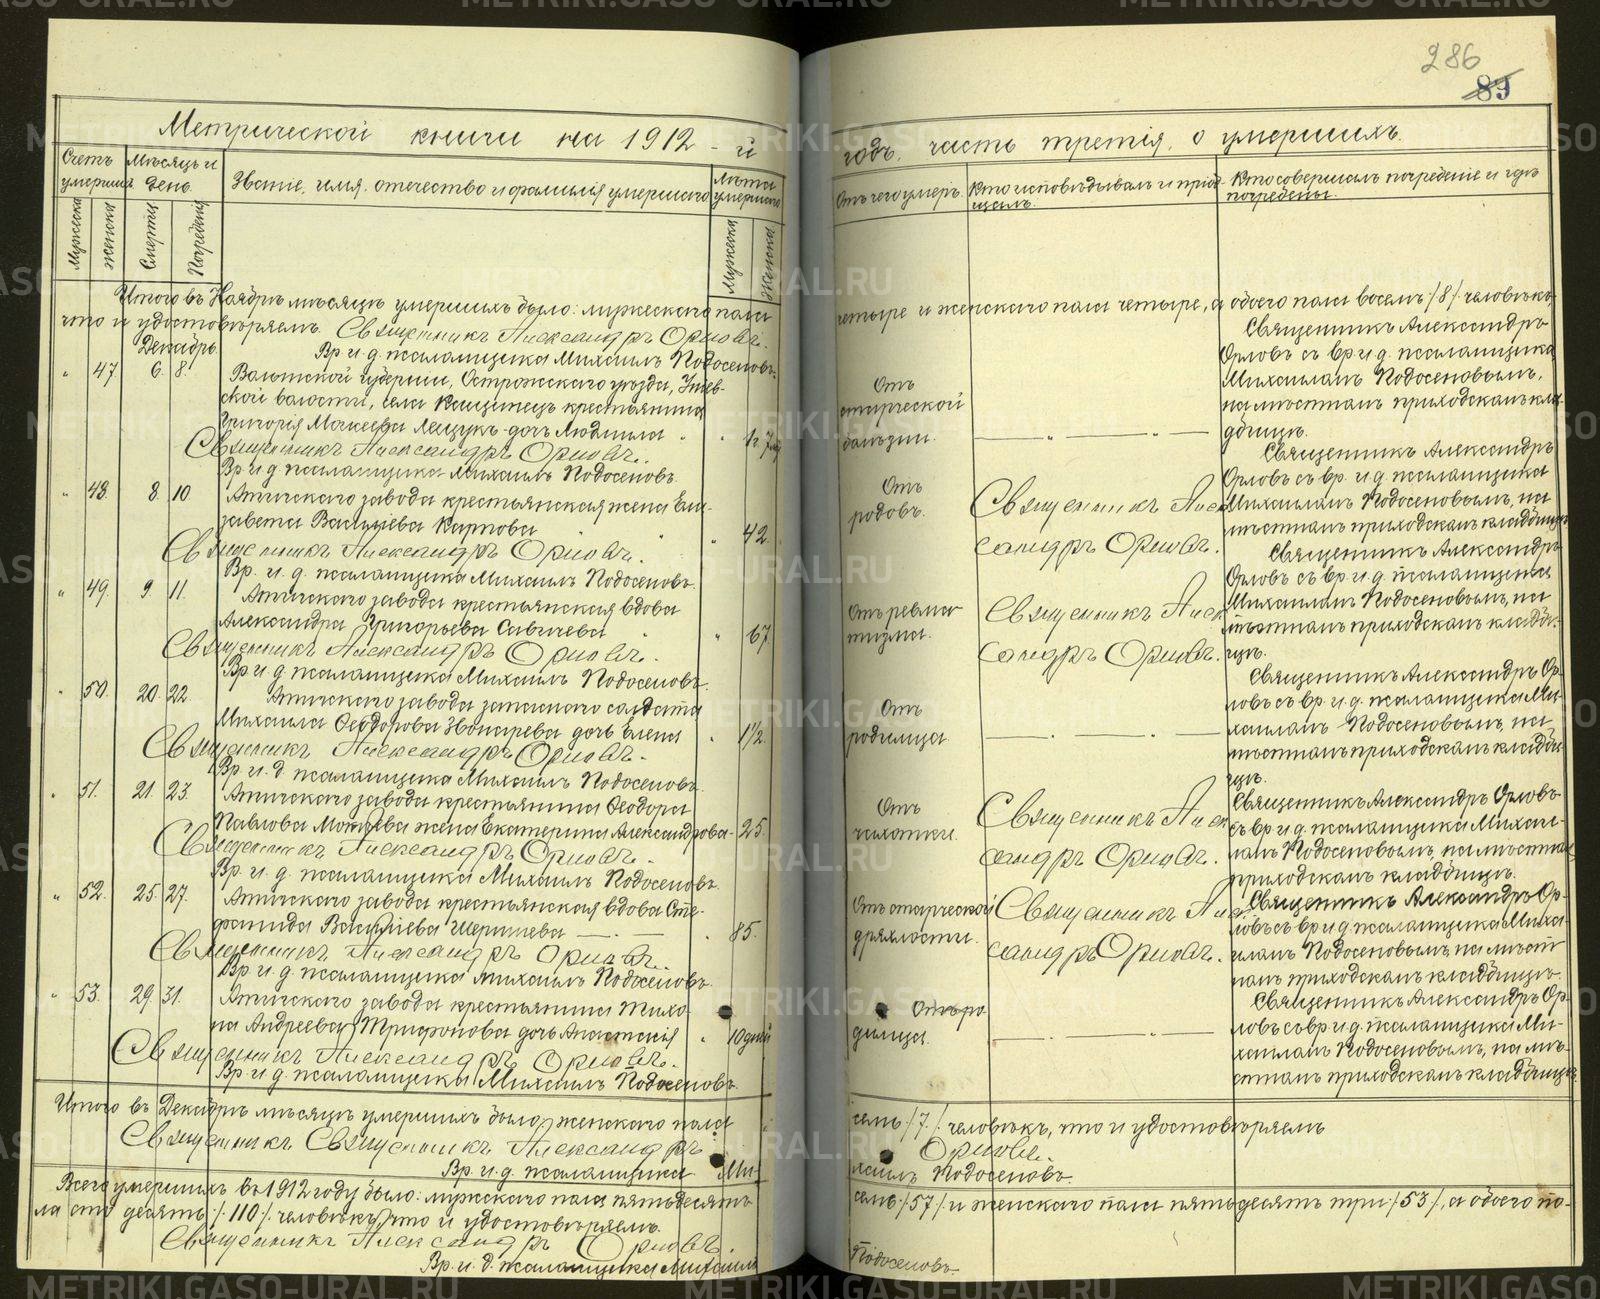 286
89
Метрической книги на 1912-й
годъ, часть третія, о умершихъ.
Счетъ умерших.
Мѣсяцъ и день.
Званіе, имя, отечество и фамилія умершаго
Лѣта умершаго
Отъ чего умеръ.
Кто исповѣдывалъ и пріоб-
щалъ.
Кто совершалъ погребеніе и гдѣ
погребены.
Мужеска
Женска
Смерти
Погребенія
Мужеска
Женска
Итого въ Ноябрѣ мѣсяцѣ умершихъ было: мужескаго пола
четыре и женскаго пола четыре, а обоего пола восемь /8/ человѣкъ,
что и удостовѣряемъ. Священникъ Александръ Орловъ.
Вр. и. д. псаломщика Михаилъ Подосеновъ.
Декабрь
" 47. 6. 8.
Волынской губерніи, Острожскаго уѣзда,
ской волости, села крестьянина
Григорія Мокеева Лещукъ дочь Людмила
1 г. 7 м.
Священникъ Александръ Орловъ.
Вр. и д. псаломщика Михаилъ Подосеновъ.
Отъ
старческой
болѣзни.
Священникъ Александръ
Орловъ съ вр. и д. псаломщика
Михаиломъ Подосеновымъ,
на мѣстномъ приходскомъ кла-
дбищѣ.
" 48. 8. 10
Атигскаго завода крестьянская жена Ели-
завета Васильева Карпова
42.
Священникъ Александръ Орловъ.
Вр. и. д. псаломщика Михаилъ Подосеновъ.
Отъ
родовъ.
Священникъ Алек-
сандръ Орловъ.
Священникъ Александръ
Орловъ съ вр. и д. псаломщика
Михаиломъ Подосеновымъ, на
мѣстномъ приходскомъ кладбищѣ
" 49. 9. 11.
Атигскаго завода крестьянская вдова
Александра Григорьева Савичева
67
Священникъ Александръ Орловъ.
Вр. и д. псаломщика Михаилъ Подосеновъ.
Отъ ревма-
тизма.
Священникъ Алек-
сандръ Орловъ.
Священникъ Александръ
Орловъ съ вр. и д. псаломщика
Михаиломъ Подосеновымъ, на
мѣстномъ приходскомъ кладби-
щѣ.
" 50. 20. 22
Атигскаго завода запаснаго солдата
Михаила Ѳеодорова дочь Елена
1½.
Священникъ Александръ Орловъ.
Вр. и. д. псаломщика Михаилъ Подосеновъ.
Отъ
родимца
Священникъ Александръ Ор-
ловъ съ вр. и д. псаломщика Ми-
хаиломъ Подосеновымъ, на
мѣстномъ приходскомъ кладби-
щѣ.
" 51. 21. 23.
Атигскаго завода крестьянина Ѳеодора
Павлова жена Екатерина Александрова
25.
Священникъ Александръ Орловъ.
Вр. и. д. псаломщика Михаилъ Подосеновъ.
Отъ
чахотки.
Священникъ Алек-
сандръ Орловъ.
Священникъ Александръ Орловъ
съ вр. и д. псаломщика Михаи-
ломъ Подосеновымъ, на мѣстном
приходскомъ кладбищѣ.
" 52. 25. 27.
Атигскаго завода крестьянская вдова Сте-
фанида Васильева
85.
Священникъ Александръ Орловъ.
Вр. и д. псаломщика Михаилъ Подосеновъ.
Отъ старческой
дряхлости.
Священникъ Алек-
сандръ Орловъ.
Священникъ Александръ Ор-
ловъ съ вр и д. псаломщика Миха-
иломъ Подосеновымъ, на мѣст-
номъ приходскомъ кладбищѣ.
" 53. 29. 31.
Атигскаго завода крестьянина Тихо-
на Андреева Трифонова дочь Анастасія
10 дней
Священникъ Александръ Орловъ.
Вр. и д. псаломщика Михаилъ Подосеновъ.
Отъ ро-
димца.
Священникъ Александръ Ор-
ловъ съ вр и д. псаломщика Ми-
хаиломъ Подосеновымъ, на мѣ-
стномъ приходскомъ кладбищѣ.
Итого въ Декабрѣ мѣсяцѣ умершихъ было женскаго пола
семь /7/ человѣкъ, что и удостовѣряемъ
Священникъ Священникъ Александръ
Орловъ.
Вр. и. д. псаломщика Ми-
хаилъ Подосеновъ.
Всего умершихъ въ 1912 году было: мужскаго пола пятьдесятъ
семь /57/ и женскаго пола пятьдесятъ три /53/, а обоего по-
ла сто десять /110/ человѣкъ, что и удостовѣряемъ.
Священникъ Александръ Орловъ.
Вр. и. д. псаломщика Михаилъ
Подосеновъ.
METRIKI.GASO-URAL.RU